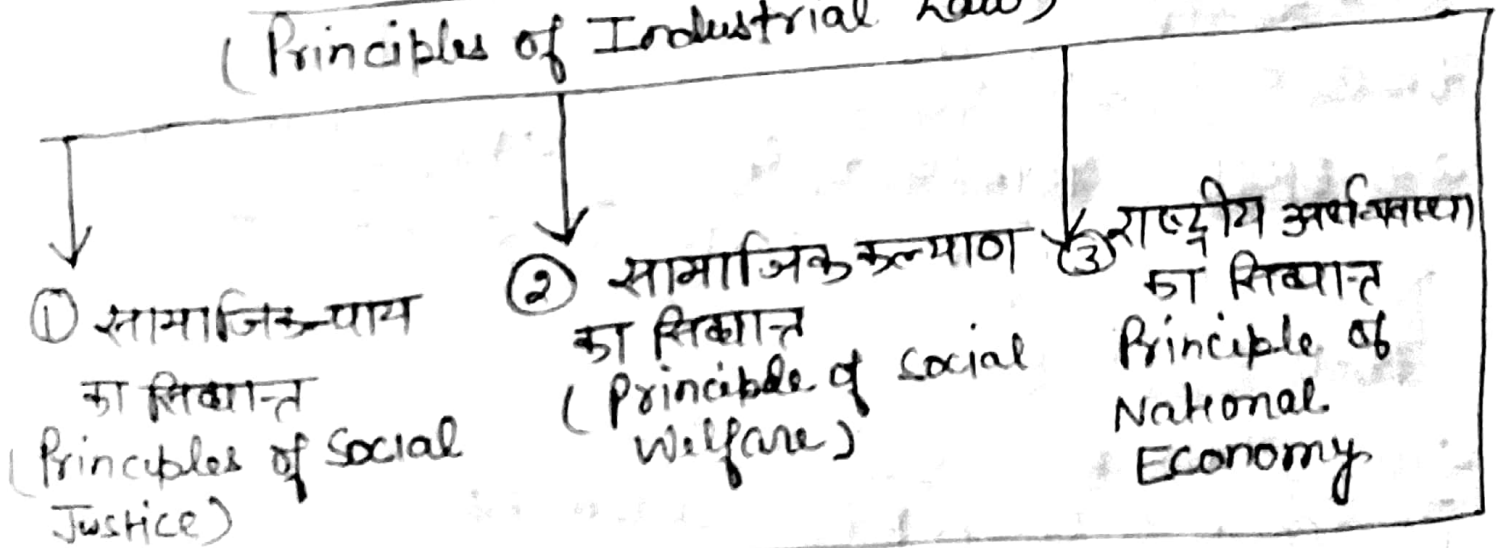 (Principles of Industrial Law)
① सामाजिक न्याय
का सिद्धान्त
(Principles of Social
Justice)
② सामाजिक कल्याण
का सिद्धान्त
(Principle of Social
Welfare)
③ राष्ट्रीय अर्थव्यवस्था
का सिद्धान्त
Principle of
National
Economy